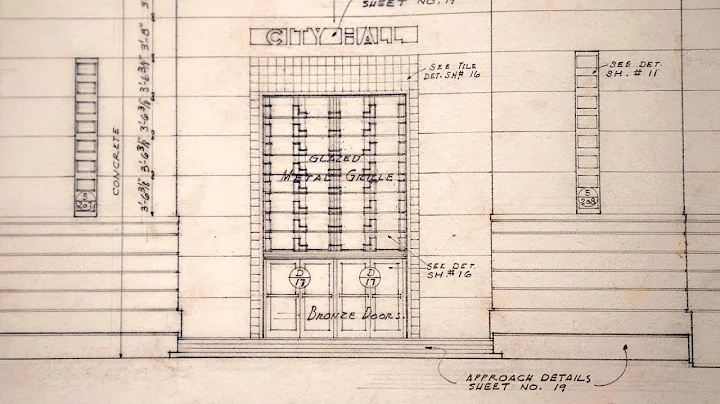 SHEET NO. 19
CITY HALL
SEE TILE
DET. SH# 16
SEE DET.
SH. # 11
3'-8"
3'-6⅜"
3'-6⅜"
3'-6⅜"
3'-6⅜"
CONCRETE
GLAZED
METAL GRILLE
S
207
S
203
SEE DET.
SH. # 16
D
17
D
17
BRONZE DOORS.
APPROACH DETAILS
SHEET NO. 19